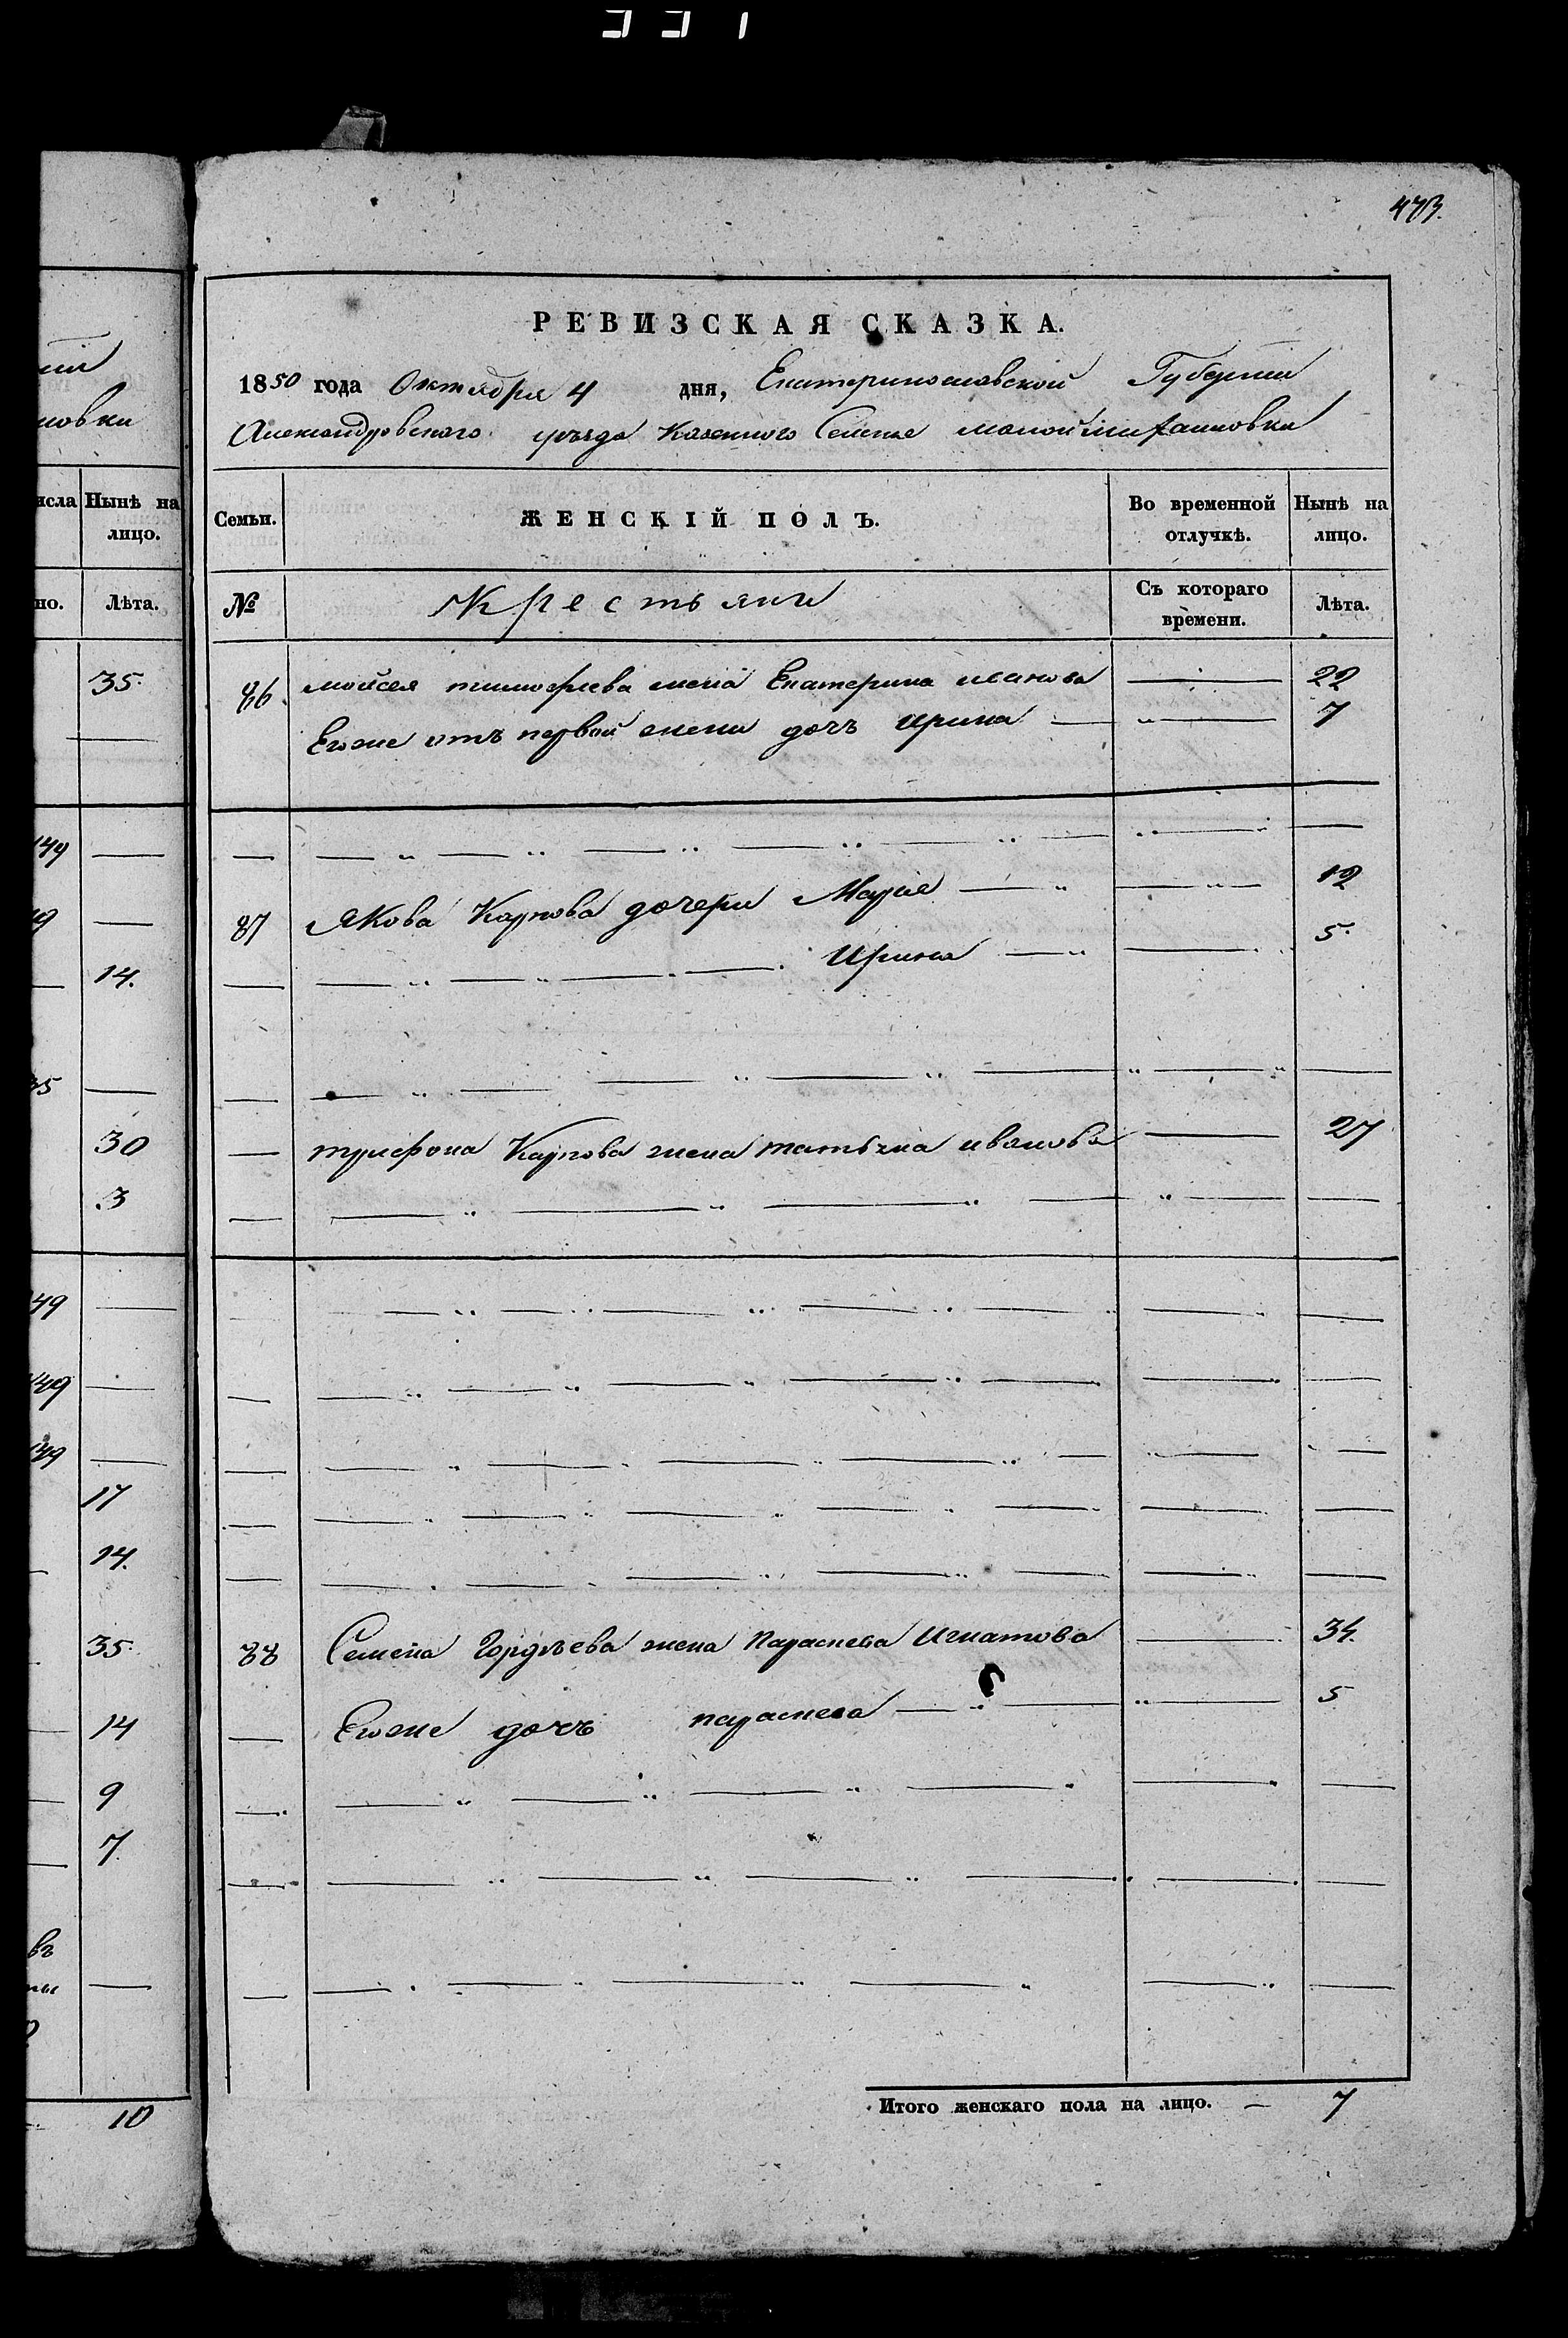 331
473.
РЕВИЗСКАЯ СКАЗКА.
1850 года Октября 4 дня, Екатеринославской Губернии
Александровского уезда Казенного Селенія малой михайловки
Семьи. ЖЕНСКІЙ ПОЛЪ. Во временной отлучкѣ. Нынѣ на лицо.
№ Крестьяни Съ котораго времени. Лѣта.
86. мойсея тимофеева жена Екатерина иванова — 22
Егоже отъ первой жены дочь Ирина — 7
87 Якова Карпова дочери Марія — 12
Ирина — 5.
— трифона Карпова жена татьяна иванова — 27
88 Семена Гордѣева жена Параскева Игнатова — 34.
— Егоже дочь параскева — 5
Итого женскаго пола на лицо. — 7
исла Нынѣ на лицо.
но. Лѣта.
35.
149 —
14.
35 —
30
3
49 —
149 —
149 —
17
14.
35.
14
9
7
10